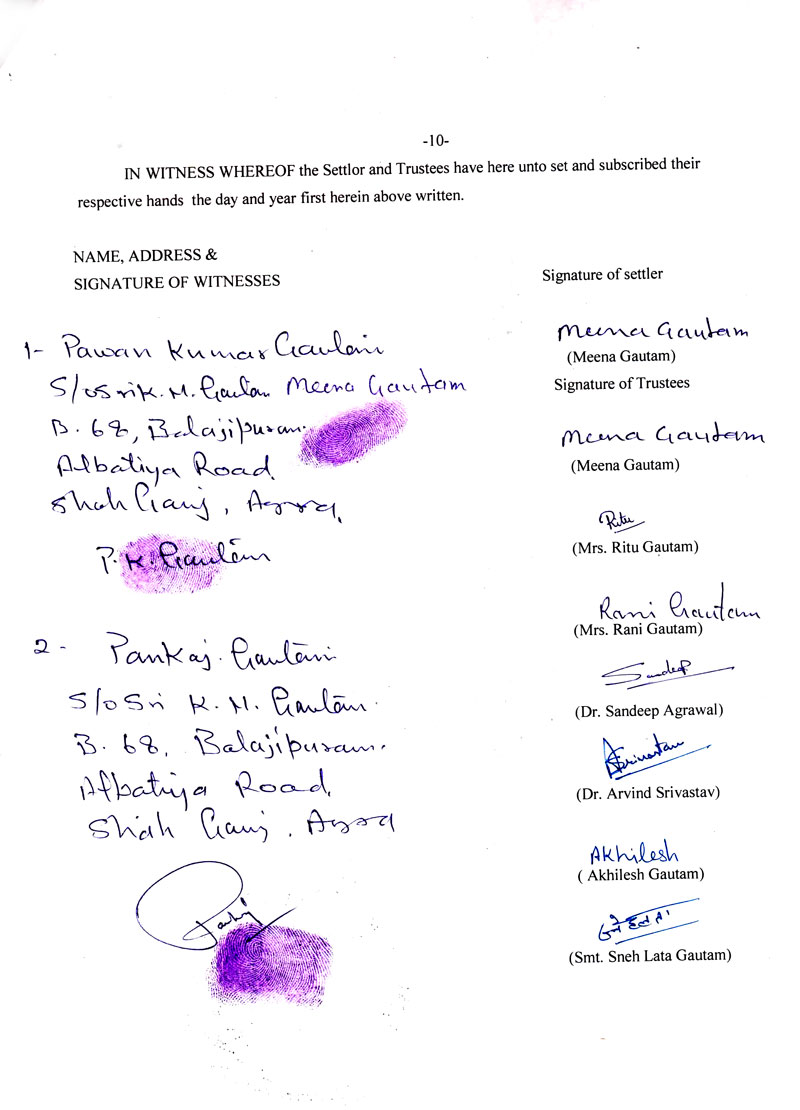 -10-
IN WITNESS WHEREOF the Settlor and Trustees have here unto set and subscribed their
respective hands the day and year first herein above written.
NAME, ADDRESS &
SIGNATURE OF WITNESSES
1- Pawan Kumar Gautam
S/o Sri K. M. Gautam Meena Gautam
B. 68, Balajipuram.
Albatiya Road
Shah Ganj, Agra,
P. K. Gautam
2 - Pankaj. Gautam
S/o Sri K. M. Gautam.
B. 68, Balajipuram.
Albatiya Road,
Shah Ganj, Agra
Pankaj
Signature of settler
Meena Gautam
(Meena Gautam)
Signature of Trustees
Meena Gautam
(Meena Gautam)
Ritu
(Mrs. Ritu Gautam)
Rani Gautam
(Mrs. Rani Gautam)
Sandeep
(Dr. Sandeep Agrawal)
ASrivastav
(Dr. Arvind Srivastav)
Akhilesh
( Akhilesh Gautam)
(Smt. Sneh Lata Gautam)